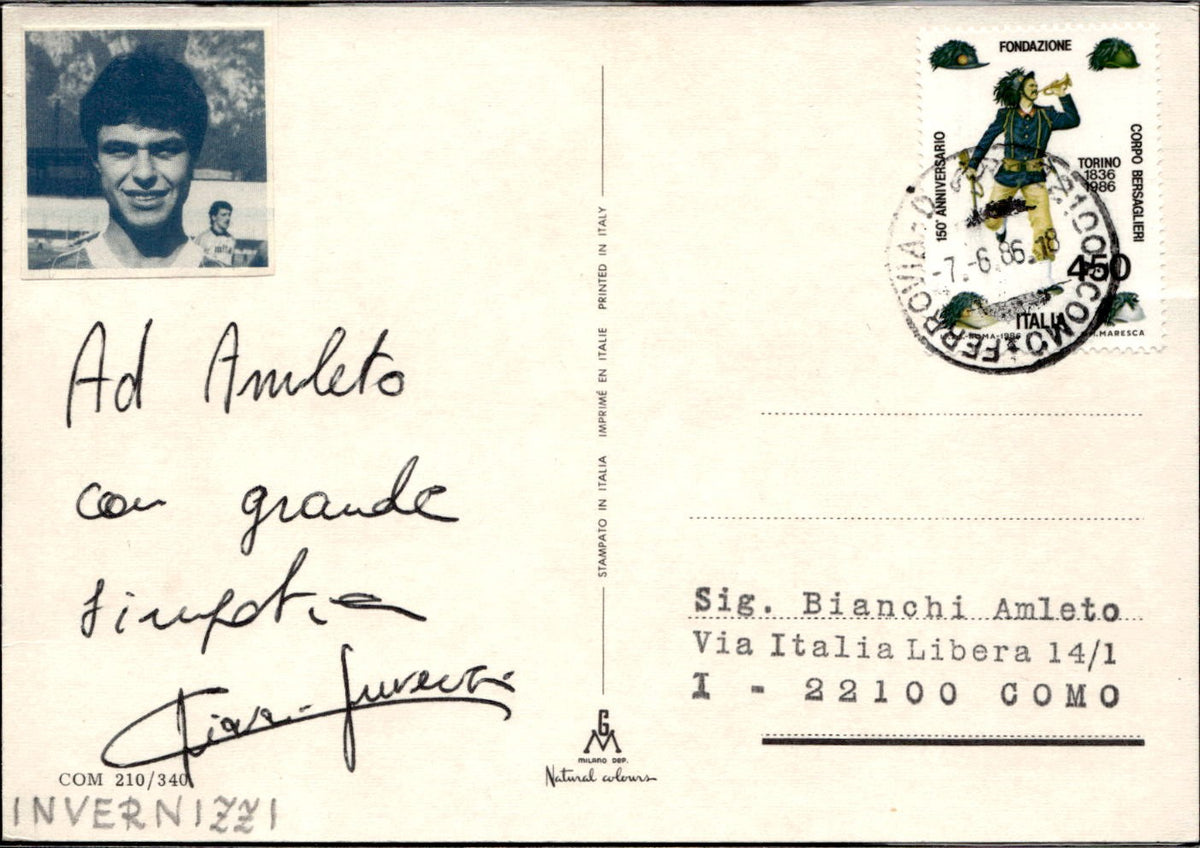 Ad Amleto
con grande
simpatia
COM 210/340
INVERNIZZI
STAMPATO IN ITALIA IMPRIMÉ EN ITALIE PRINTED IN ITALY
GM
MILANO DEP.
Natural colours
FONDAZIONE
150° ANNIVERSARIO
CORPO BERSAGLIERI
TORINO
1836
1986
450
ITALIA
ROMA-1986
M.MARESCA
22100 COMO FERROVIA
-7.-6.86.18
Sig. Bianchi Amleto
Via Italia Libera 14/1
I - 22100 COMO